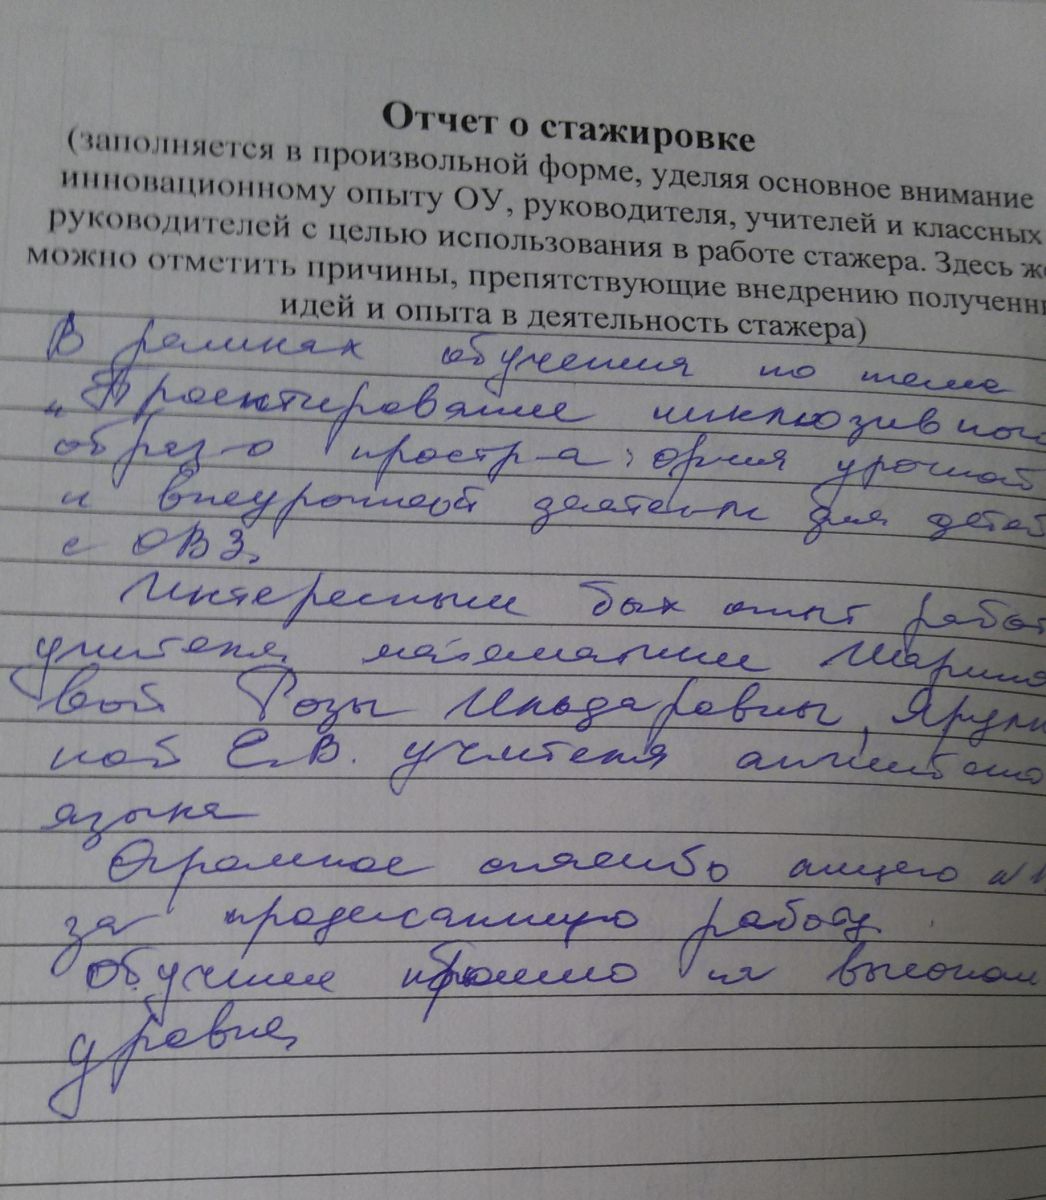 Отчет о стажировке
(заполняется в произвольной форме, уделяя основное внимание
инновационному опыту ОУ, руководителя, учителей и классных
руководителей с целью использования в работе стажера. Здесь же
можно отметить причины, препятствующие внедрению полученны
идей и опыта в деятельность стажера)
В рамках обучения по теме
„Проектирование инклюзивного
образ-о простр-а: орг-ия урочной
и внеурочной деятельн для детей
с ОВЗ.
Интересным был опыт работ
учителя математики Шарипо
вой Розы Ильдаровны,
ной Е.В. учителя английско
языка
Огромное спасибо лицею №1
за проделанную работу.
Обучение прошло на высоком
уровне,